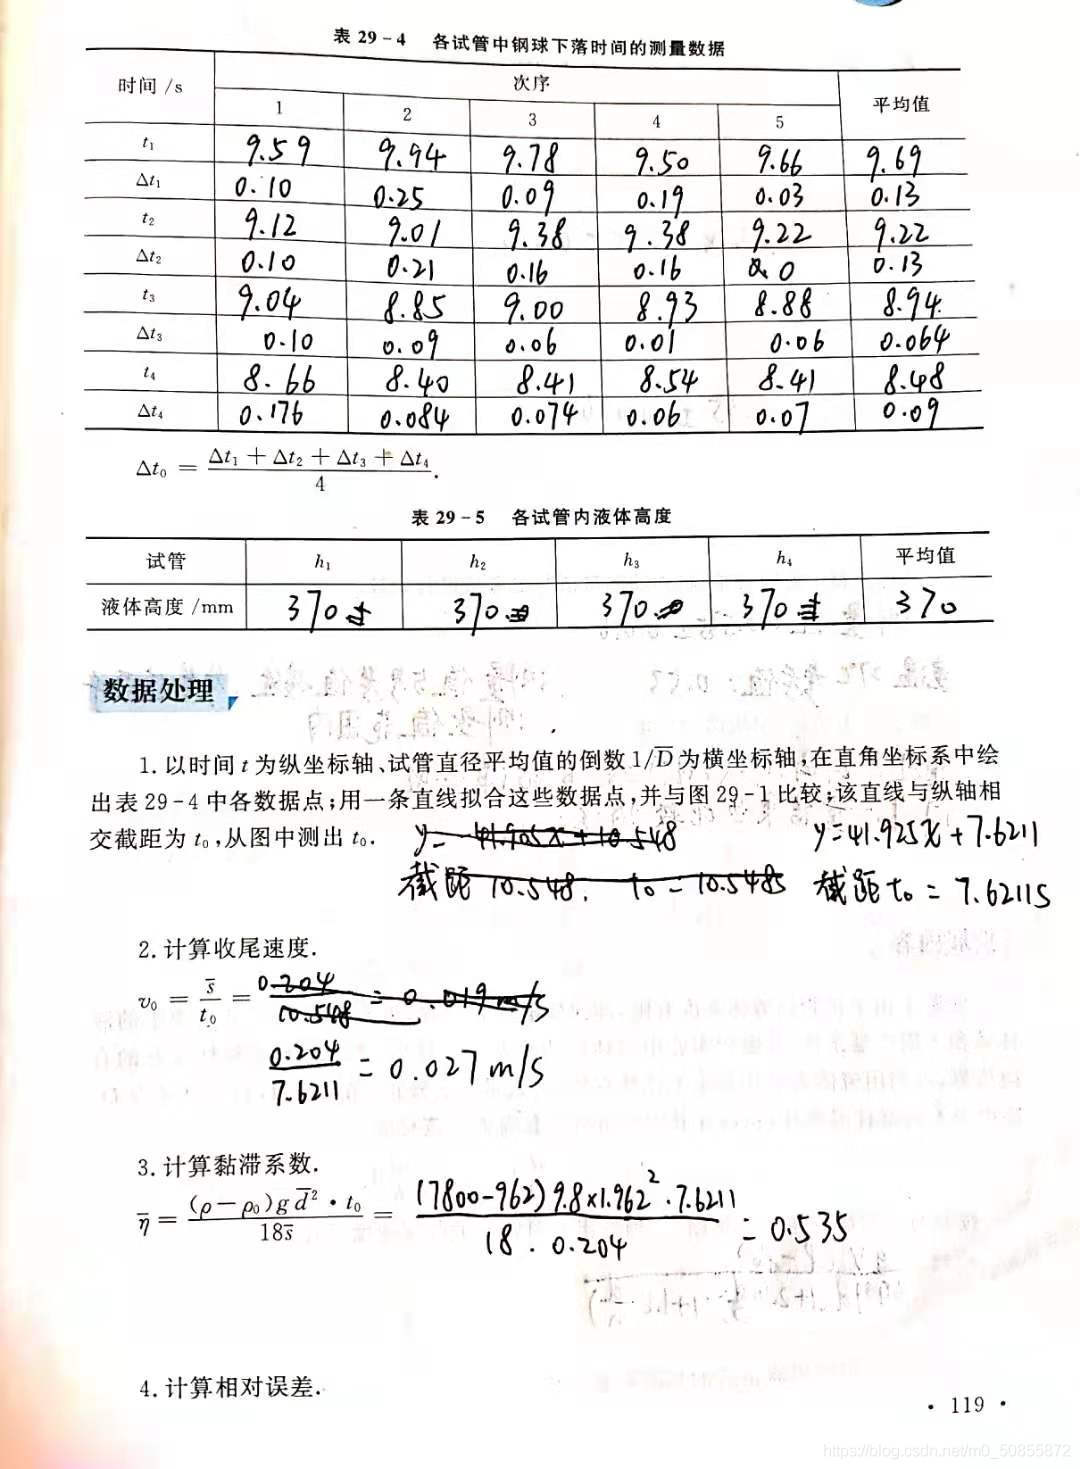 表 29-4 各试管中钢球下落时间的测量数据
时间/s 次序 平均值
1 2 3 4 5
t₁ 9.59 9.94 9.78 9.50 9.66 9.69
Δt₁ 0.10 0.25 0.09 0.19 0.03 0.13
t₂ 9.12 9.01 9.38 9.38 9.22 9.22
Δt₂ 0.10 0.21 0.16 0.16 0 0.13
t₃ 9.04 8.85 9.00 8.93 8.88 8.94
Δt₃ 0.10 0.09 0.06 0.01 0.06 0.064
t₄ 8.66 8.40 8.41 8.54 8.41 8.48
Δt₄ 0.176 0.084 0.074 0.06 0.07 0.09
Δt₀ = (Δt₁ + Δt₂ + Δt₃ + Δt₄)/4.
表 29-5 各试管内液体高度
试管 h₁ h₂ h₃ h₄ 平均值
液体高度/mm 370 370 370 370 370
数据处理
1. 以时间 t 为纵坐标轴、试管直径平均值的倒数 1/D̅ 为横坐标轴,在直角坐标系中绘
出表 29-4 中各数据点;用一条直线拟合这些数据点,并与图 29-1 比较;该直线与纵轴相
交截距为 t₀,从图中测出 t₀. y= 41.905x+10.548 y=41.925x+7.6211
截距 10.548. t₀ = 10.548s 截距 t₀ = 7.6211s
2. 计算收尾速度.
v₀ = s̅/t₀ = 0.204/10.548 = 0.019 m/s
0.204/7.6211 = 0.027 m/s
3. 计算黏滞系数.
η̅ = (ρ-ρ₀)g d̅²·t₀/18s̅ = (7800-962)9.8×1.962²·7.6211/18.0.204 = 0.535
4. 计算相对误差.
· 119 ·
https://blog.csdn.net/m0_50855872